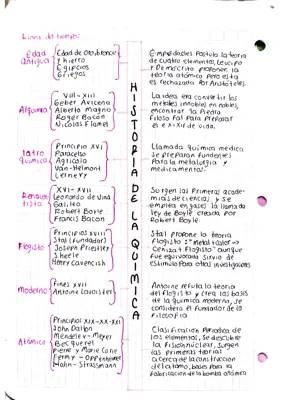 Linea del tiempo
Edad antigua
Edad de Oro, bronce
y hierro
Egipcios
Griegos
Empedocles Postula la teoria
de cuatro elementos, Leucipo
y Democrito proponen la
teoria atómica pero esta
es rechazada por Aristóteles.
Alquimia
VIII - XIII
Geber Avicena
Alberto Magno
Roger Bacon
Nicolas Flamel
La idea era convertir los
metales innobles en nobles,
encontrar la Piedra
Filosofal para preparar
el elixir de vida.
Iatro química
Principio XVI
Paracelso
Agricola
Van-Helmont
Lemery
Llamada química médica
Se preparan fundentes
Para la metalurgia y
medicamentos.
Renacentista
XVI - XVII
Leonardo de Vinci
Galileo
Robert Boyle
Francis Bacon
Surgen las Primeras acade-
mias de ciencias, y se
empieza en gases la llamada
ley de Boyle creada por
Robert Boyle.
Flogisto
Principios XVIII
Stal (fundador)
Joseph Priestley
Sheele
Henry Cavendish
Stal propone la teoria
Flogisto: "metal calor →
Ceniza + Flogisto" aunque
fue equivocada sirvio de
estimulo Para otras investigaciones
Moderno
Fines XVII
Antoine Lavoisier
Antoine refuta la teoria
del flogisto y crea las bases
de la química moderna, se
considera el fundador de la
Filosofia
Atómico
Principios XIX-XX-XXI
John Dalton
Mendeleev - Meyer
Becquerel
Pierre y Marie Curie
Fermy - Oppenheimer
Hahn - Strassmann
Clasificación Periodica de
los elementos, se descubre
la Fisión nuclear, surgen
las primeras teorias
acerca de la construccion
del átomo, bases para la
fabricación de la bomba atómica
HISTORIA DE LA QUIMICA